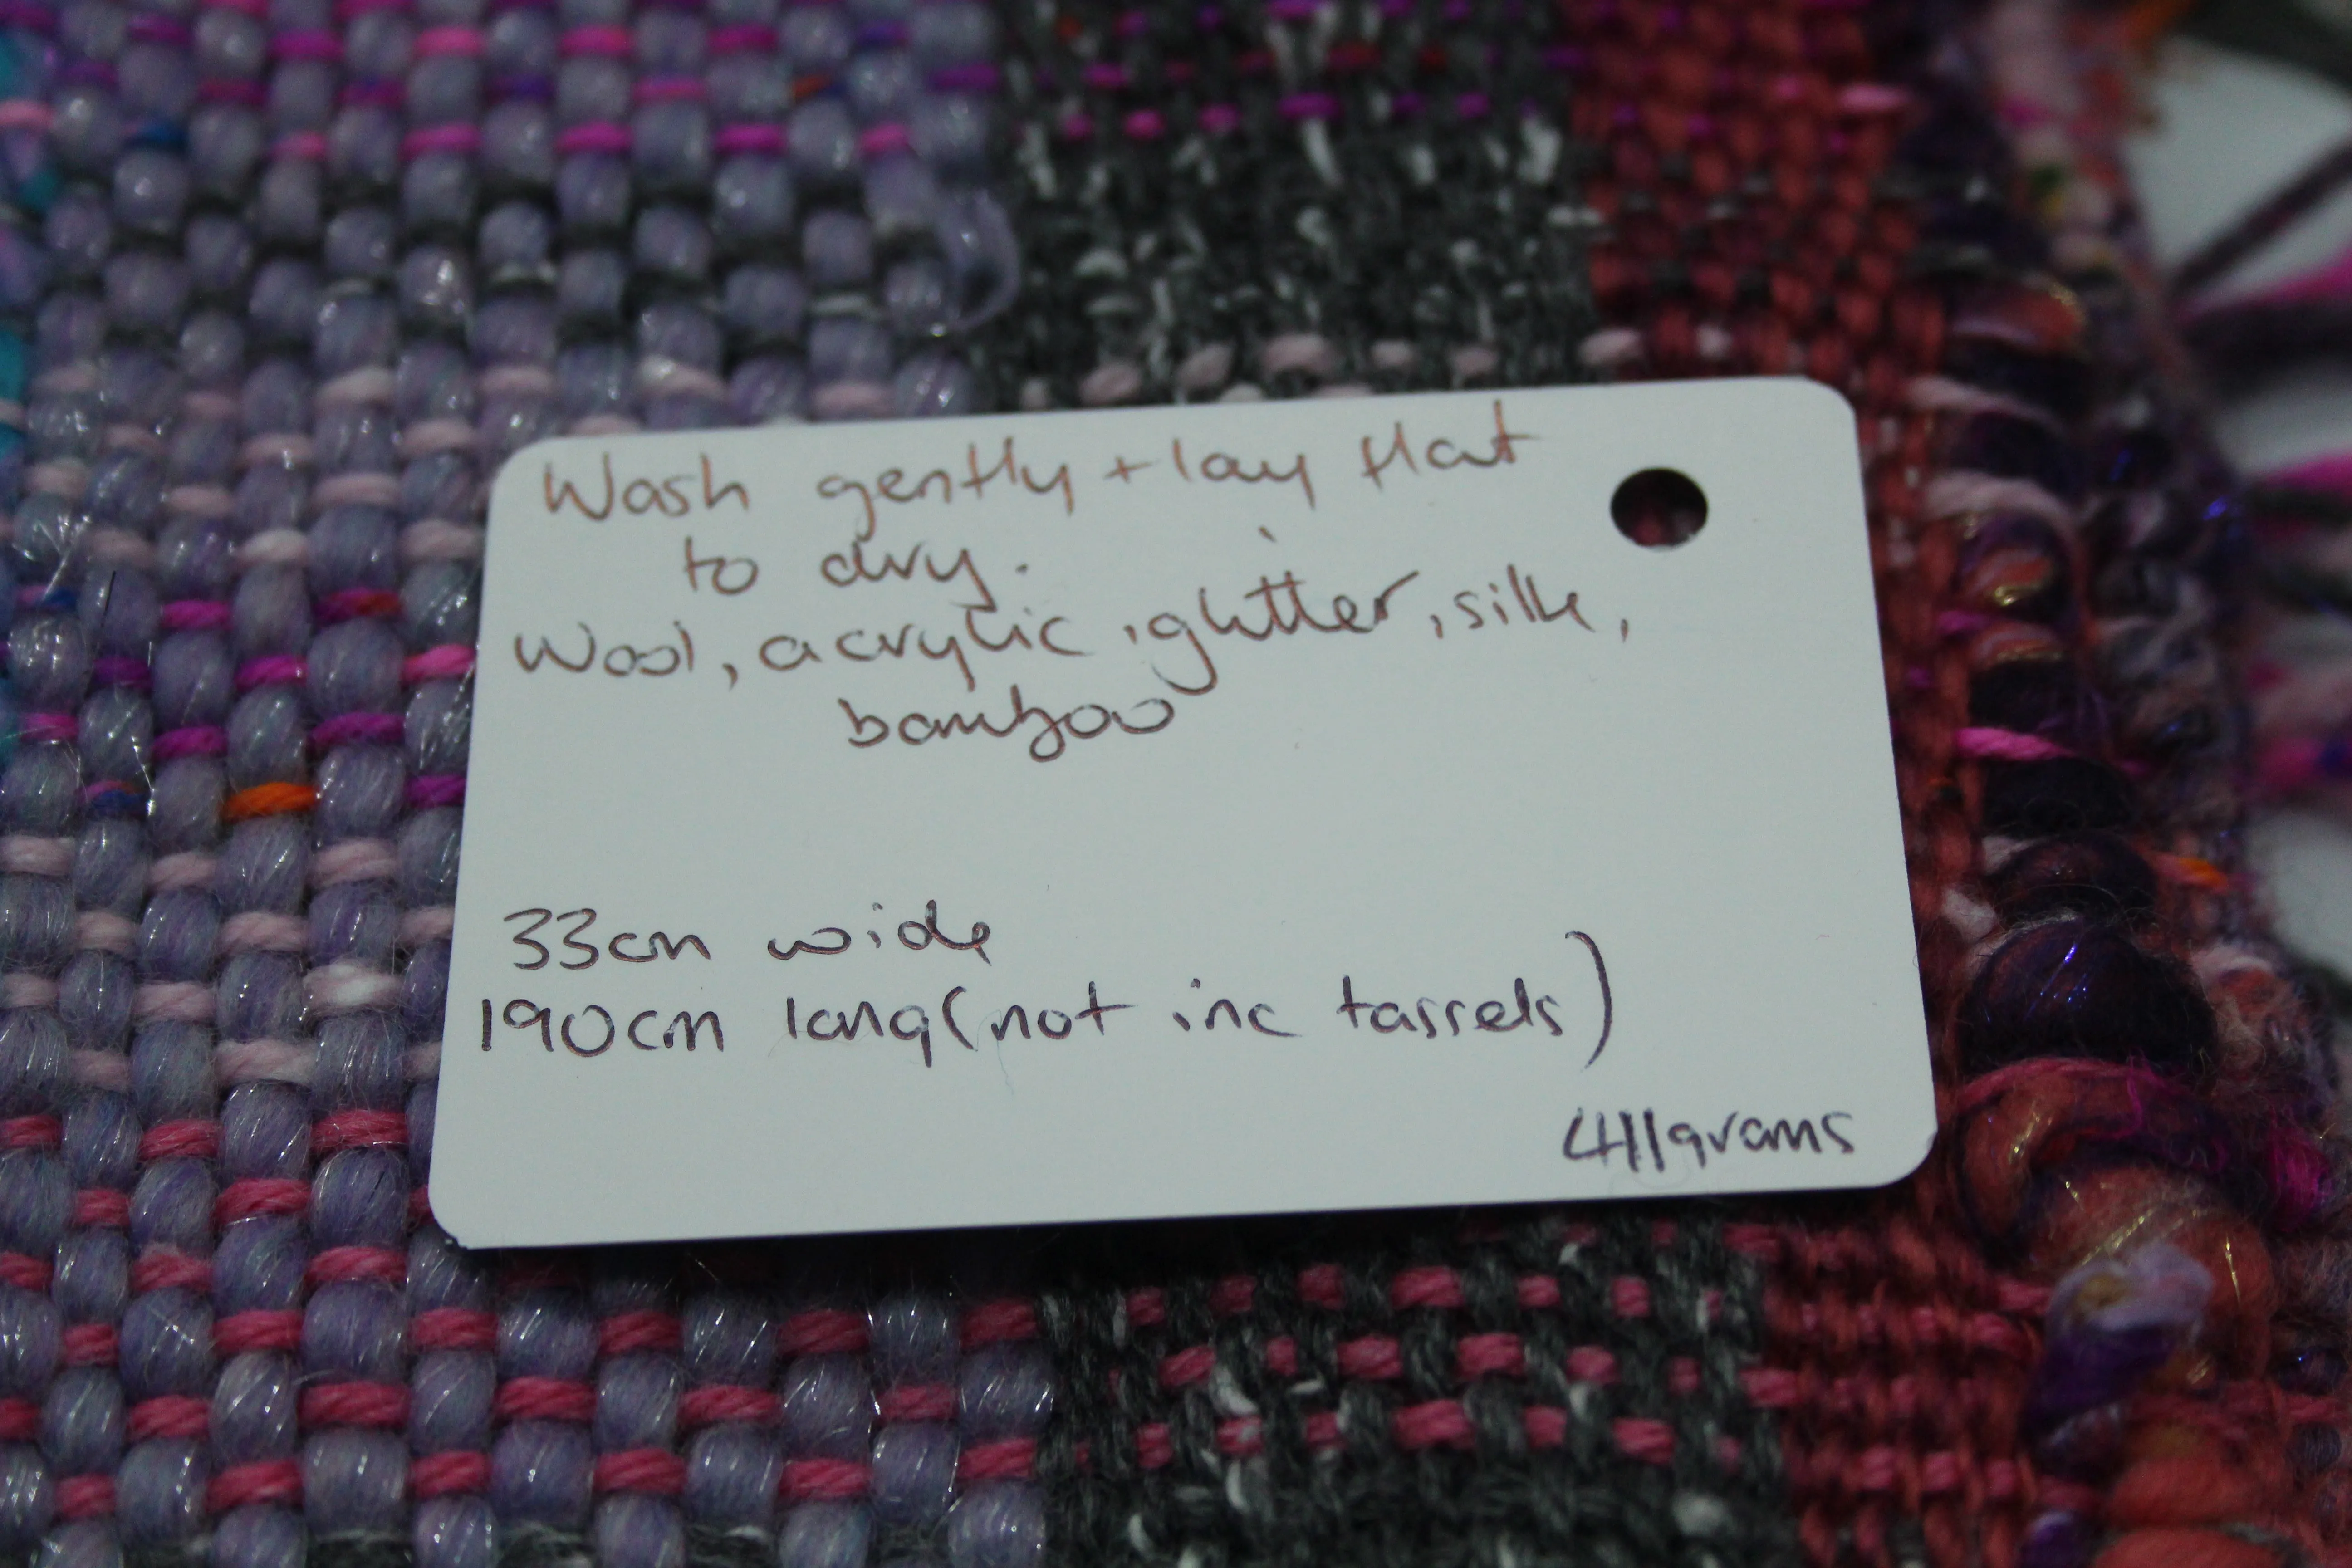 Wash gently + lay flat
to dry.
Wool, acrylic, glitter, silk,
bamboo
33cm wide
190cm long (not inc tassels)
411grams